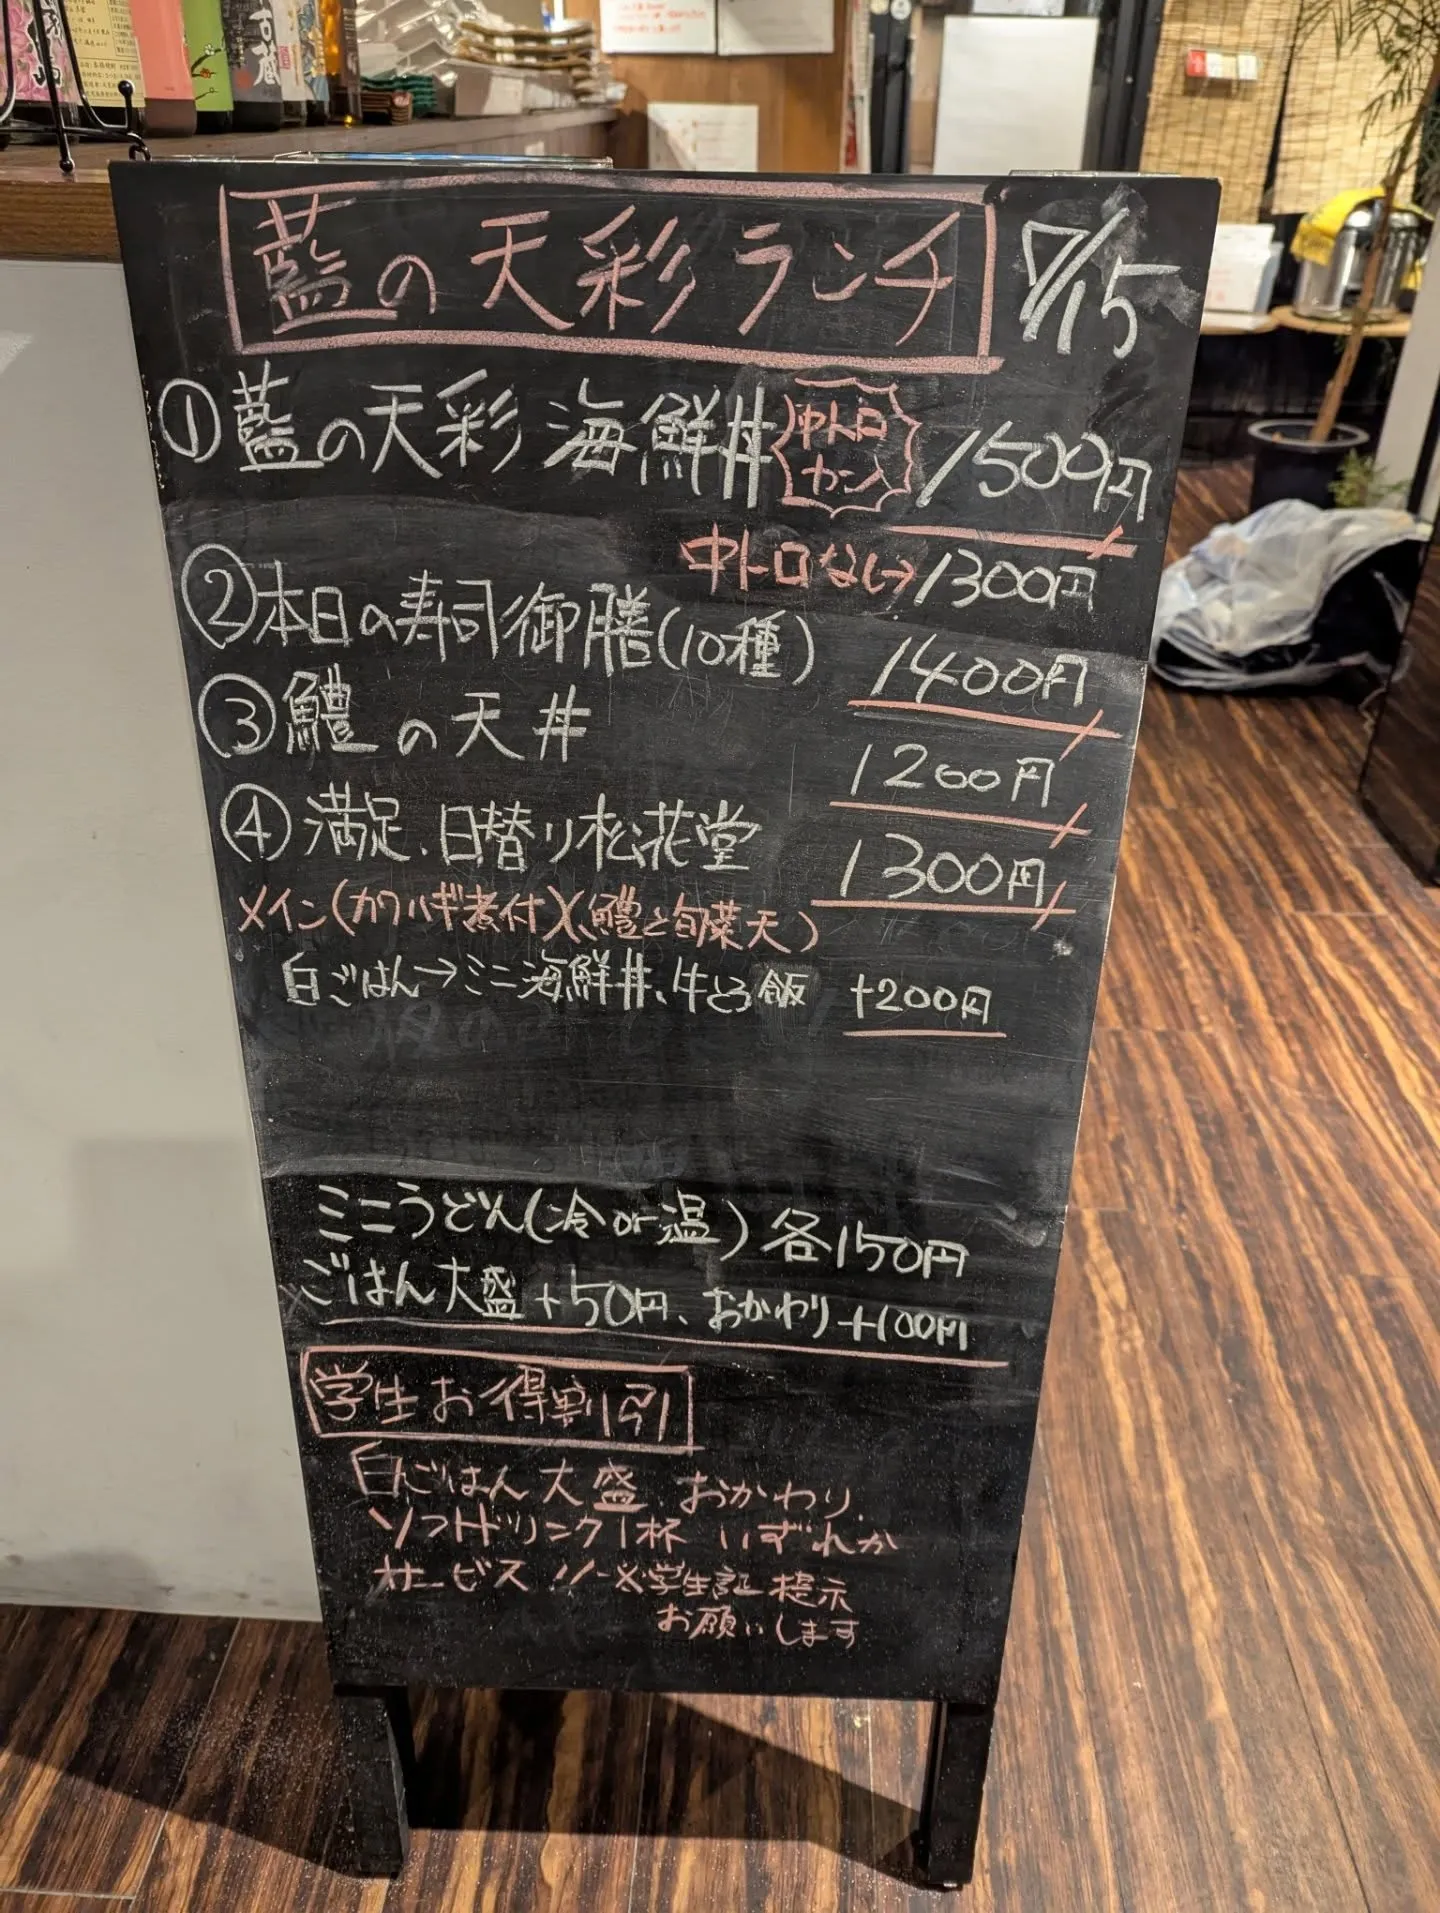 藍の天彩ランチ 7/15
①藍の天彩 海鮮丼 中トロ カン 1500円
中トロなし→1300円
②本日の寿司御膳(10種) 1400円
③鱧の天丼 1200円
④満足、日替り松花堂 1300円
メイン(カワハギ煮付)(鱧と旬菜天)
白ごはん→ミニ海鮮丼、牛とろ飯 +200円
ミニうどん(冷or温)各150円
ごはん大盛+50円、おかわり+100円
学生お得割引
白ごはん大盛、おかわり、
ソフトドリンク1杯 いずれか
サービス!!※学生証提示
お願いします